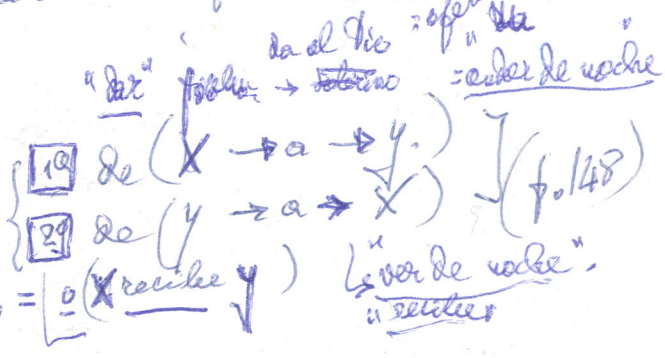 da al Dio
"dar" → = andar de noche
1º de (X → a → y.)
2º de (y → a → X) (p.148)
= o (X recibe y) "ver de noche".
"recibir